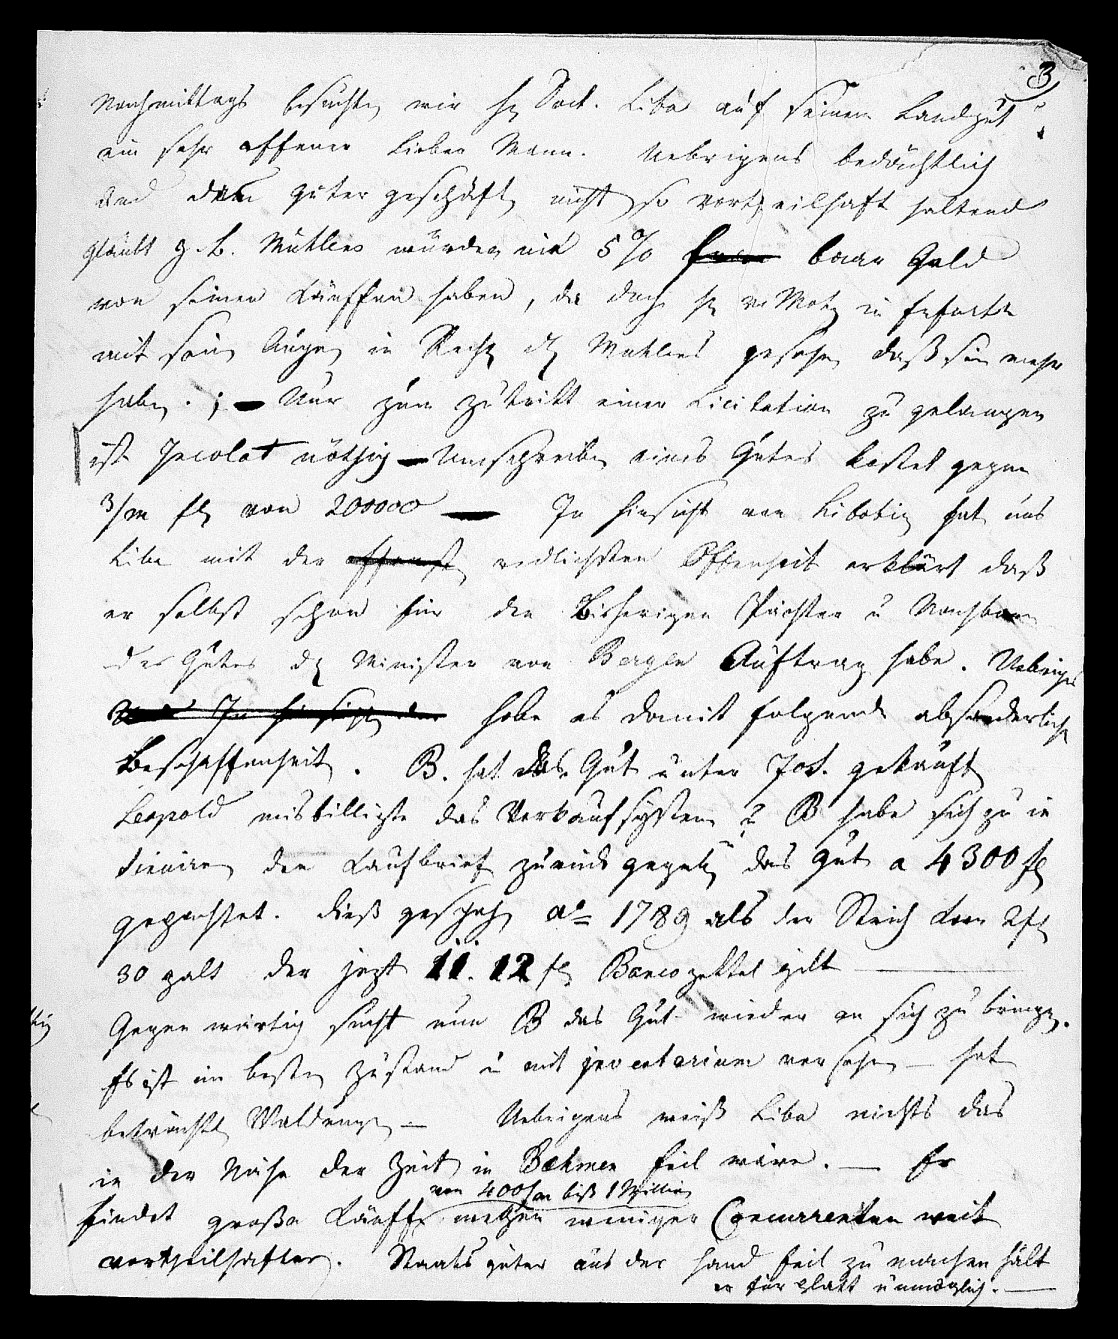 3
Nachmittags besuchten wir H Doct. Liba auf seinem Landgut
ein sehr offener lieber Mann. Uebrigens bedächtlich
und den guter geschäft nicht so vortheilhaft haltend
glaubt g. L. Muhlens würden nie 5 % baar Geld
von seinen Käuffen haben, da doch H v Motz in Erfurth
mit sein Augen in Rech d Muhlens gesehen daß sie mehr
haben. ; — Nur zum zutritt einer Licitation zu gelangen
ist Incolat nöthig — Umschreiben eines Gutes kostet gegen
3/m fl von 200000 — In hinsicht von Libotin hat uns
Liba mit der redlichsten Offenheit erklärt daß
er selbst schon für den bisherigen Pächter u Nachbarn
des Gutes d Minister von Auftrag habe. Uebrigens
In hinsicht der habe es damit folgende absonderliche
Beschaffenheit. B. hat das Gut unter Jos. gekauft
Leopold misbilligte das Verkaufsystem B habe sich zu in
den Kaufbrief zurück gegeben das Gut a 4300 fl
gepachtet. dieß geschah ao 1789 als der Strich Korn 2 fl
30 galt der jezt 11. 12 fl Bancozettel gilt —
Gegenwärtig sucht nun B das Gut wieder an sich zu bringen.
Es ist im besten Zustand u mit versehen — hat
beträchtl Waldungen — Uebrigens weiß Liba nichts das
in der Nähe der Zeit in Bœhmen feil wäre. — Er
von 400/m biß 1 Million
findet große Käuffe wegen weniger Concurrenten weit
vortheilhafter. Staats güter aus der hand feil zu machen hält
er für glatt unmöglich. —